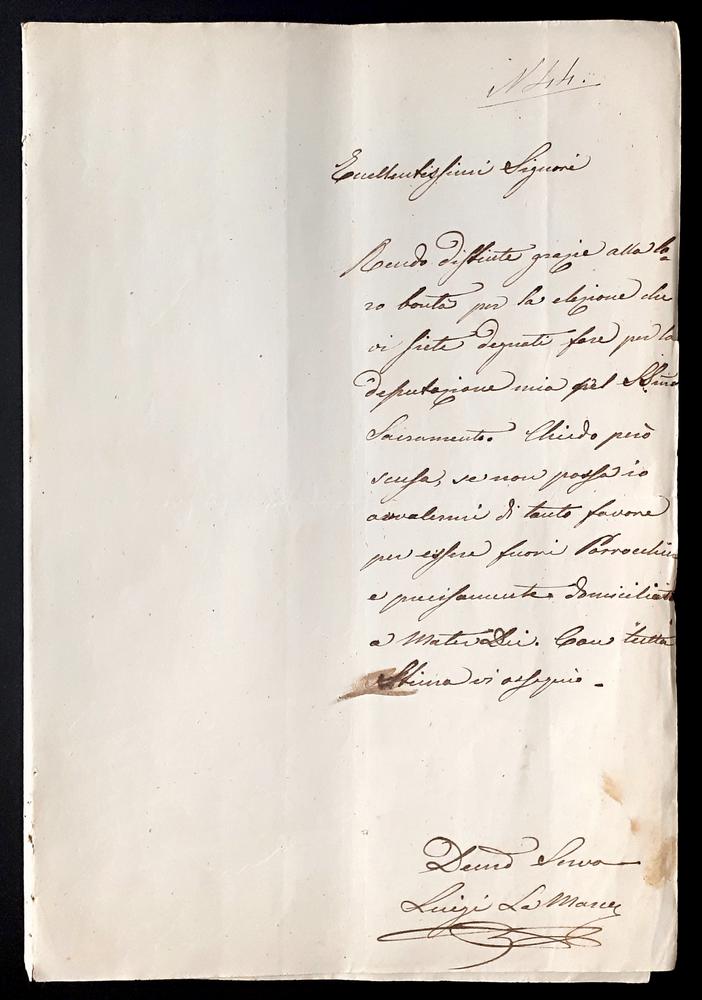 N 44.
Eccellentissimi Signori
Rendo distinte grazie alla lo=
ro bontà per la elezione che
vi siete degnati fare per la
deputazione mia pel SSmo
Sacramento. Chiedo però
scusa, se non possa io
avvalermi di tanto favore
per essere fuori Parrocchia
e precisamente domiciliato
a Mater Dei. Con tutta
stima vi ossequio.
Servo
Luigi La Marca